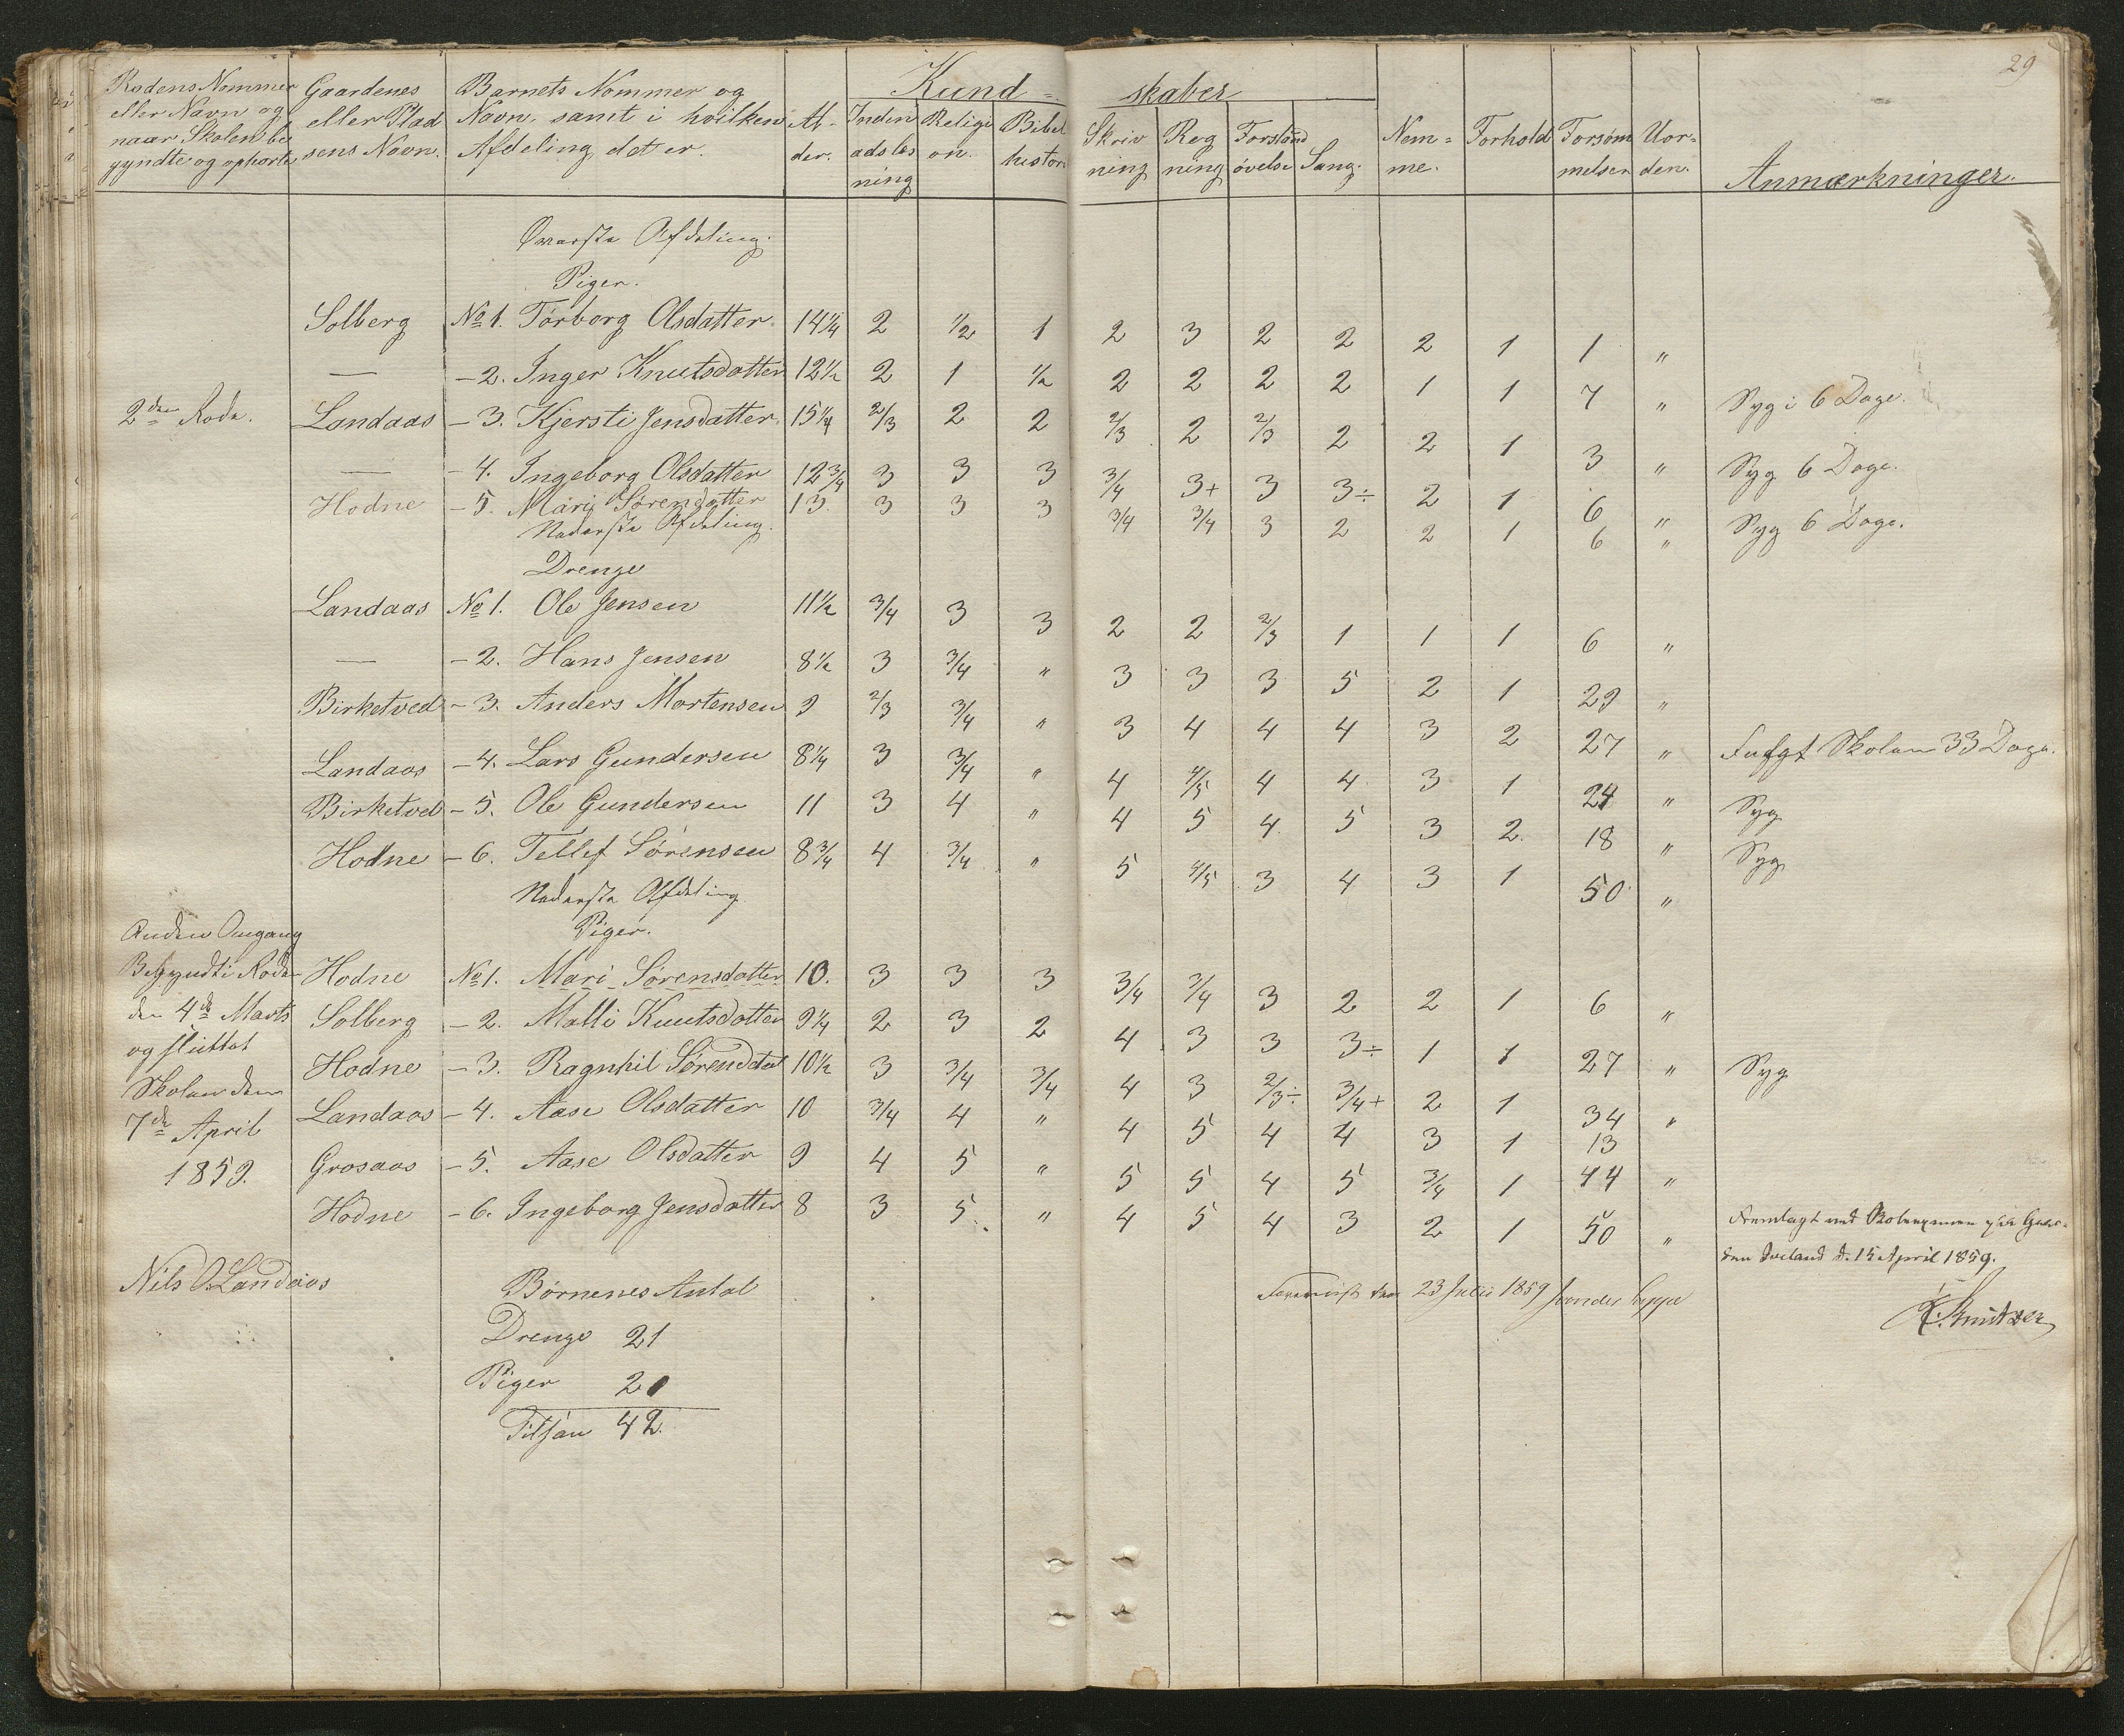 29
Rodens Nommer eller Navn og naar Skolen begyndte og ophørte
Gaardenes eller Pladsens Navn.
Barnets Nommer og Navn, samt i hvilken Afdeling det er.
Alder.
Kundskaber
Indenadslæsning
Religion.
Bibelhistor
Skrivning
Regning
Forstandøvelse
Sang.
Nemme.
Forhold
Forsømmelser
Uorden.
Anmærkninger.
Øverste Afdeling.
Piger.
Solberg No 1. Torborg Olsdatter 14 1/4 2 1/2 1 2 3 2 2 2 1 1 "
— - 2. Inger Knutsdatter 12 1/2 2 1 1/2 2 2 2 2 1 1 7 " Syg i 6 Dage.
2den Rode. Landaas - 3. Kjersti Jensdatter 15 1/4 2/3 2 2 2/3 2 2/3 2 2 1 3 " Syg 6 Dage.
— - 4. Ingeborg Olsdatter 12 3/4 3 3 3 3/4 3+ 3 3÷ 2 1 6 " Syg 6 Dage.
Hodne - 5. Mari Sørensdatter 13. 3 3 3 3/4 3/4 3 2 2 1 6 "
Nederste Afdeling.
Drenge
Landaas No 1. Ole Jensen 11 1/2 3/4 3 3 2 2 2/3 1 1 1 6 "
— - 2. Hans Jensen 8 1/2 3 3/4 " 3 3 3 5 2 1 29 "
Birketved - 3. Anders Mortensen 9 2/3 3/4 " 3 4 4 4 3 2 27 " Skolen 33 Dage.
Landaas - 4. Lars Gundersen 8 1/4 3 3/4 " 4 4/5 4 4 3 1 24 " Syg
Birketved - 5. Ole Gundersen 11 3 4 " 4 5 4 5 3 2. 18 " Syg
Hodne - 6. Tellef Sørensen 8 3/4 4 3/4 " 5 4/5 3 4 3 1 50 "
Nederste Afdeling
Piger.
Anden Omgang
Begyndte Roden
den 4de Marts
og sluttet
Skolen den
7de April
1859.
Hodne No 1. Mari Sørensdatter 10. 3 3 3 3/4 3/4 3 2 2 1 6 "
Solberg - 2. Malli Knutsdatter 9 1/4 2 3 2 4 3 3 3÷ 1 1 27 " Syg
Hodne - 3. Ragnhil Sørensdat 10 1/2 3 3/4 3/4 4 3 2/3÷ 3/4+ 2 1 34 "
Landaas - 4. Aase Olsdatter 10 3/4 4 " 4 5 4 4 3 1 13
Grosaas - 5. Aase Olsdatter 9 4 5 " 5 5 4 5 3/4 1 44 "
Hodne - 6. Ingeborg Jensdatter 8 3 5 " 4 5 4 3 2 1 50 "
Fremlagt ved Skoleexamen paa Gaar-
den d. 15 April 1859.
Nils O. Landaas
23 Julii 1859
Børnenes Antal
Drenge 21
Piger 21
Tilsam 42.